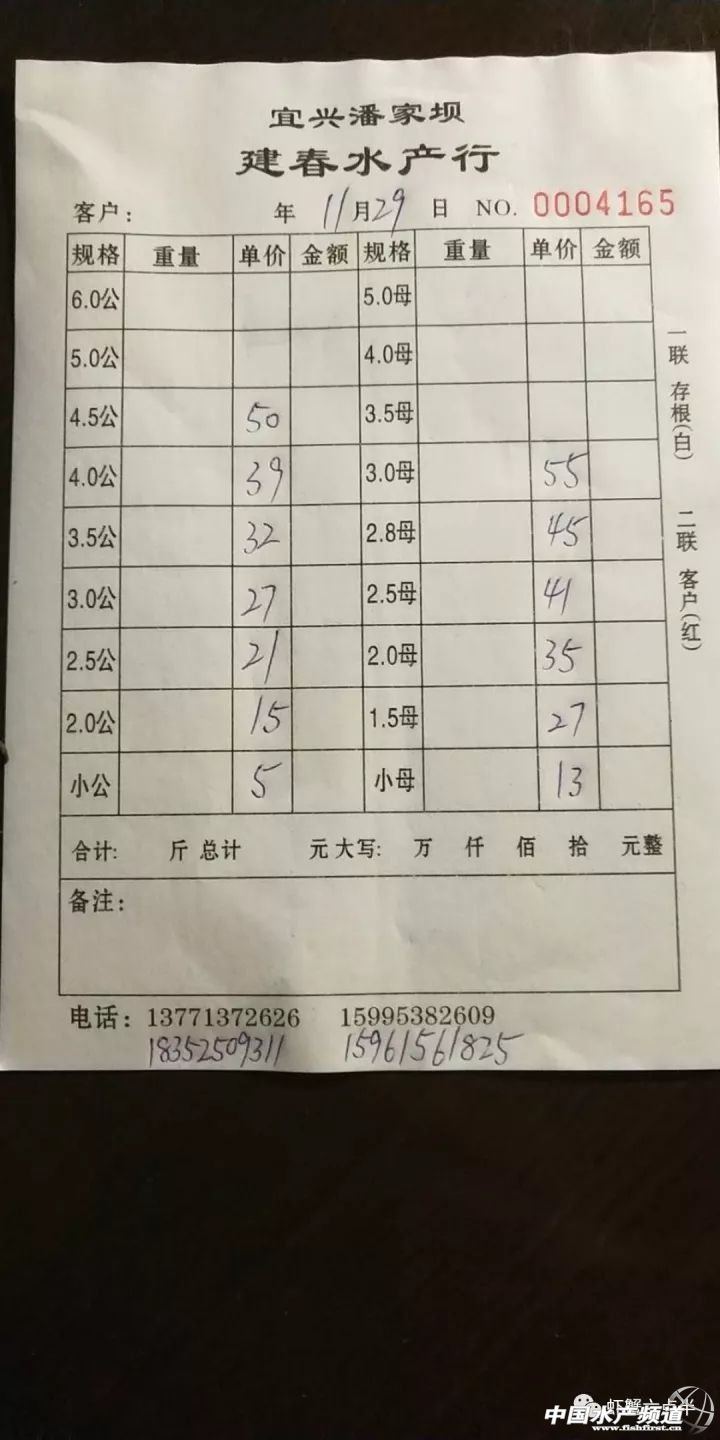 宜兴潘家坝
建春水产行
客户: 年 11月29日 NO. 0004165
规格 重量 单价 金额 规格 重量 单价 金额
6.0公 5.0母
5.0公 4.0母
4.5公 50 3.5母
4.0公 39 3.0母 55
3.5公 32 2.8母 45
3.0公 27 2.5母 41
2.5公 21 2.0母 35
2.0公 15 1.5母 27
小公 5 小母 13
合计: 斤 总计 元 大写: 万 仟 佰 拾 元整
备注:
电话: 13771372626 15995382609
18352509311 15961561825
一联 存根(白) 二联 客户(红)
虾蟹六点半
中国水产频道
www.fishfirst.cn